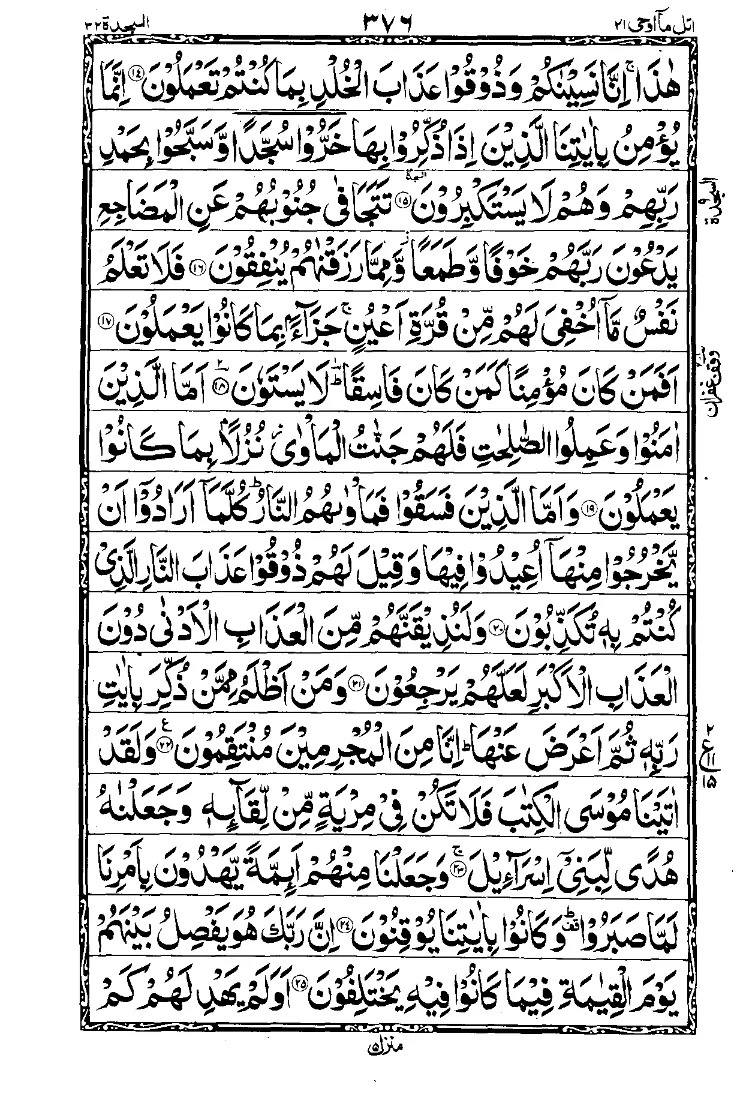 اتل مآ اوحی ۲۱ ۳۷۶ السجدة ۳۲
هٰذَا ۚ اِنَّا نَسِيْنٰكُمْ وَذُوْقُوْا عَذَابَ الْخُلْدِ بِمَا كُنْتُمْ تَعْمَلُوْنَ ﴿۱۴﴾ اِنَّمَا
يُؤْمِنُ بِاٰيٰتِنَا الَّذِيْنَ اِذَا ذُكِّرُوْا بِهَا خَرُّوْا سُجَّدًا وَّسَبَّحُوْا بِحَمْدِ
رَبِّهِمْ وَهُمْ لَا يَسْتَكْبِرُوْنَ ﴿۱۵﴾ السجدة تَتَجَافٰى جُنُوْبُهُمْ عَنِ الْمَضَاجِعِ
السجدة ۹
يَدْعُوْنَ رَبَّهُمْ خَوْفًا وَّطَمَعًا ۫ وَّمِمَّا رَزَقْنٰهُمْ يُنْفِقُوْنَ ﴿۱۶﴾ فَلَا تَعْلَمُ
نَفْسٌ مَّاۤ اُخْفِىَ لَهُمْ مِّنْ قُرَّةِ اَعْيُنٍ ۚ جَزَآءًۢ بِمَا كَانُوْا يَعْمَلُوْنَ ﴿۱۷﴾
اَفَمَنْ كَانَ مُؤْمِنًا كَمَنْ كَانَ فَاسِقًا ؕ لَا يَسْتَوٗنَ ﴿۱۸﴾ اَمَّا الَّذِيْنَ
وقف غفران
اٰمَنُوْا وَعَمِلُوا الصّٰلِحٰتِ فَلَهُمْ جَنّٰتُ الْمَاْوٰى نُزُلًۢا بِمَا كَانُوْا
يَعْمَلُوْنَ ﴿۱۹﴾ وَاَمَّا الَّذِيْنَ فَسَقُوْا فَمَاْوٰىهُمُ النَّارُ ؕ كُلَّمَاۤ اَرَادُوْۤا اَنْ
يَّخْرُجُوْا مِنْهَاۤ اُعِيْدُوْا فِيْهَا وَقِيْلَ لَهُمْ ذُوْقُوْا عَذَابَ النَّارِ الَّذِىْ
كُنْتُمْ بِهٖ تُكَذِّبُوْنَ ﴿۲۰﴾ وَلَنُذِيْقَنَّهُمْ مِّنَ الْعَذَابِ الْاَدْنٰى دُوْنَ
الْعَذَابِ الْاَكْبَرِ لَعَلَّهُمْ يَرْجِعُوْنَ ﴿۲۱﴾ وَمَنْ اَظْلَمُ مِمَّنْ ذُكِّرَ بِاٰيٰتِ
رَبِّهٖ ثُمَّ اَعْرَضَ عَنْهَا ؕ اِنَّا مِنَ الْمُجْرِمِيْنَ مُنْتَقِمُوْنَ ﴿۲۲﴾ وَلَقَدْ
۲ ع ۱۱ ۱۵
اٰتَيْنَا مُوْسَى الْكِتٰبَ فَلَا تَكُنْ فِىْ مِرْيَةٍ مِّنْ لِّقَآئِهٖ وَجَعَلْنٰهُ
هُدًى لِّبَنِىْۤ اِسْرَآءِيْلَ ﴿۲۳﴾ وَجَعَلْنَا مِنْهُمْ اَئِمَّةً يَّهْدُوْنَ بِاَمْرِنَا
لَمَّا صَبَرُوْا ؕ وَكَانُوْا بِاٰيٰتِنَا يُوْقِنُوْنَ ﴿۲۴﴾ اِنَّ رَبَّكَ هُوَ يَفْصِلُ بَيْنَهُمْ
يَوْمَ الْقِيٰمَةِ فِيْمَا كَانُوْا فِيْهِ يَخْتَلِفُوْنَ ﴿۲۵﴾ اَوَلَمْ يَهْدِ لَهُمْ كَمْ
منزل ۵